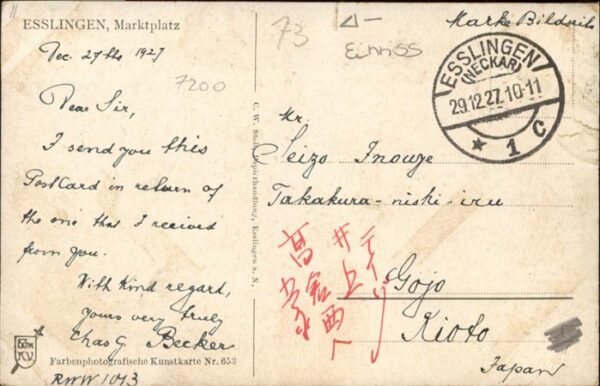 ESSLINGEN, Marktplatz
Dec. 27the 1927
7200
Dear Sir,
I send you this
Postcard in return of
the one that I received
from you.
With Kind regard,
Yours very truly
Chas G Becker
Farbenphotografische Kunstkarte Nr. 653
RWW 1013
Papierhandlung, Esslingen a. N.
73
Marke Bildseite
ESSLINGEN
(NECKAR)
29.12.27.10-11
* 1 C
Mr.
Seizo Inouye
Takakura-nishi-iru
Gojo
Kioto
Japan
井上
高倉西入